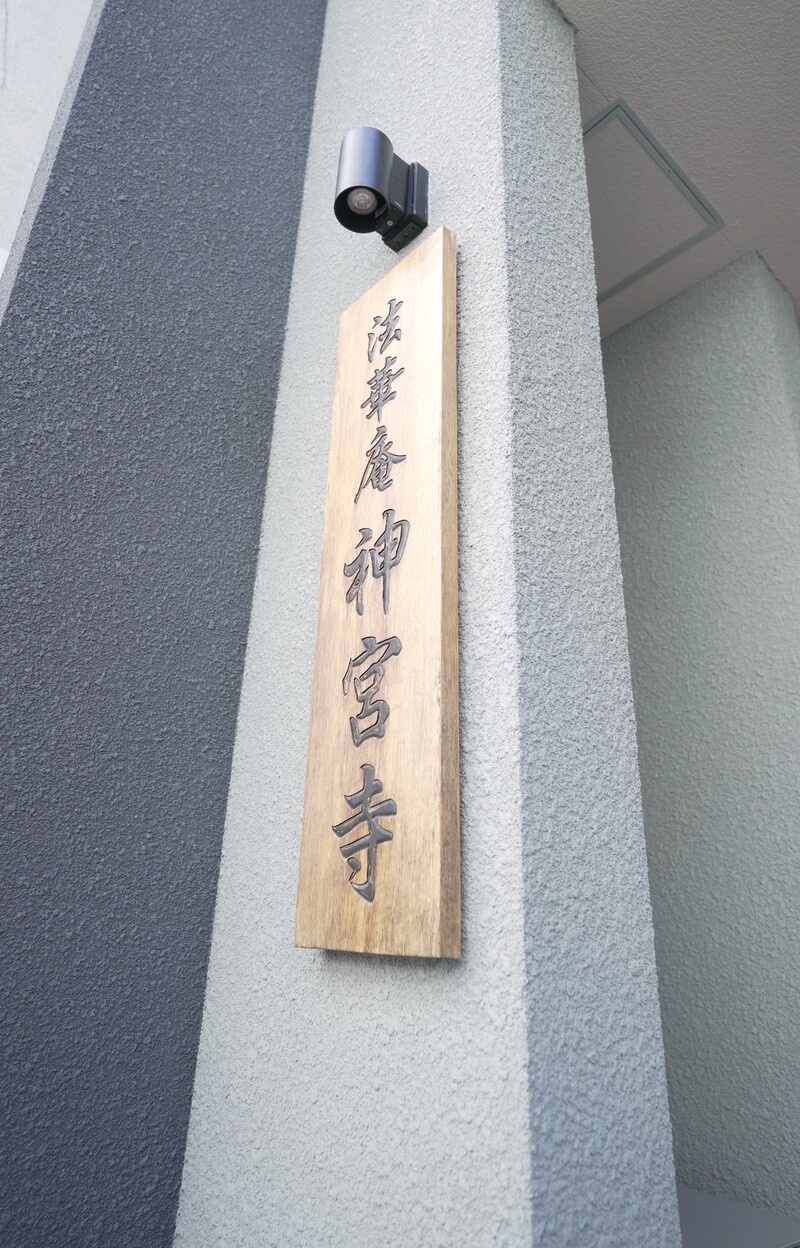 法華庵神宮寺